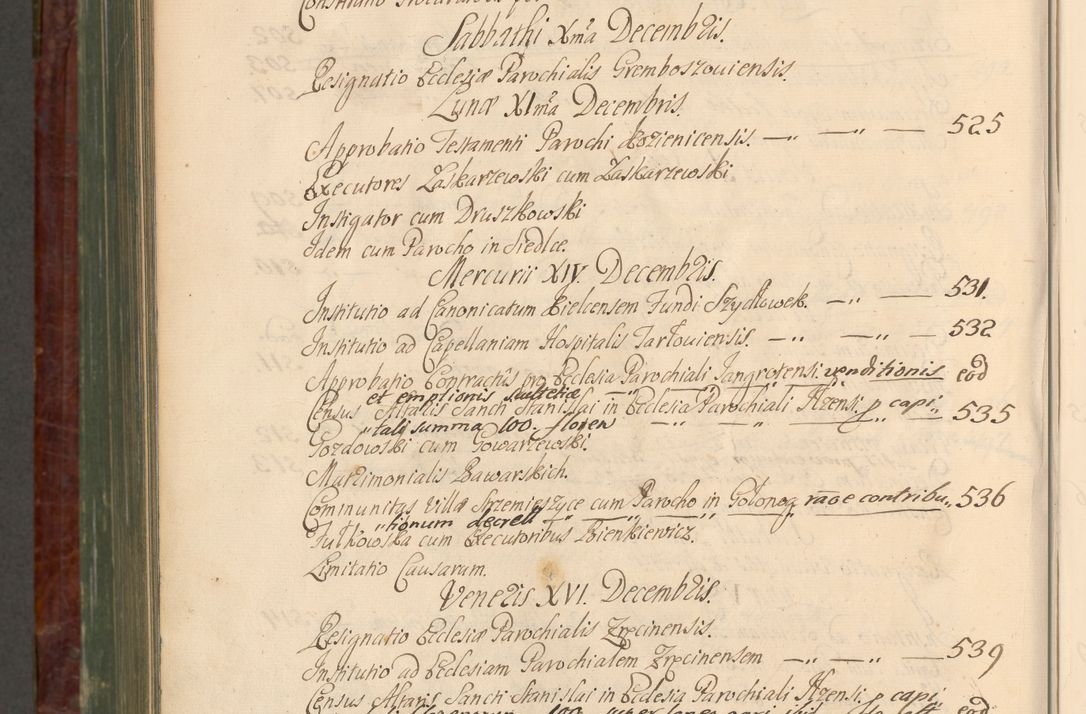 Sabbathi Xma Decembris.
Resignatio Eclesiæ Parochialis Gremboszouiensis.
Lunæ XIma Decembris.
Approbatio Testamenti Parochi Kozienicensis. — „ — „ — 525
Executores Zaskarzewski cum Zaskarzewski
Instigator cum Druszkowski
Idem cum Parocho in Siedlce.
Mercurii XIV. Decembris.
Institutio ad Canonicatum Kielcensem Fundi Szydłowek. — „ — 531.
Institutio ad Capellaniam Hospitalis Tarłouiensis. — „ — „ — 532
Approbatio Contractûs pro Ecclesia Parochiali Jangrotensi venditionis eod
et emptionis Scultetiæ
Census Altaris Sancti Stanislai in Eclesia Parochiali Ilzensi p capi„ 535
„tali summa 100. floren — „ — „ — „ —
Gozdowski cum Gowarzewski.
Matrimonialis Bawarskich.
Communitas Villæ Strzemieszyce cum Parocho in Gołonog raõe contribu„ 536
„tionum decrett — „ — „ — „
Tutkowska cum Executoribus Bienkiewicz.
Limitatio Causarum.
Veneris XVI. Decembris.
Resignatio Eclesiæ Parochialis Zręcinensis.
Institutio ad Eclesiam Parochialem Zręcinensem — „ — „ — 539
Census Altaris Sancti Stanislai in Eclesia Parochiali Ilzensi p capi„
100 super eod